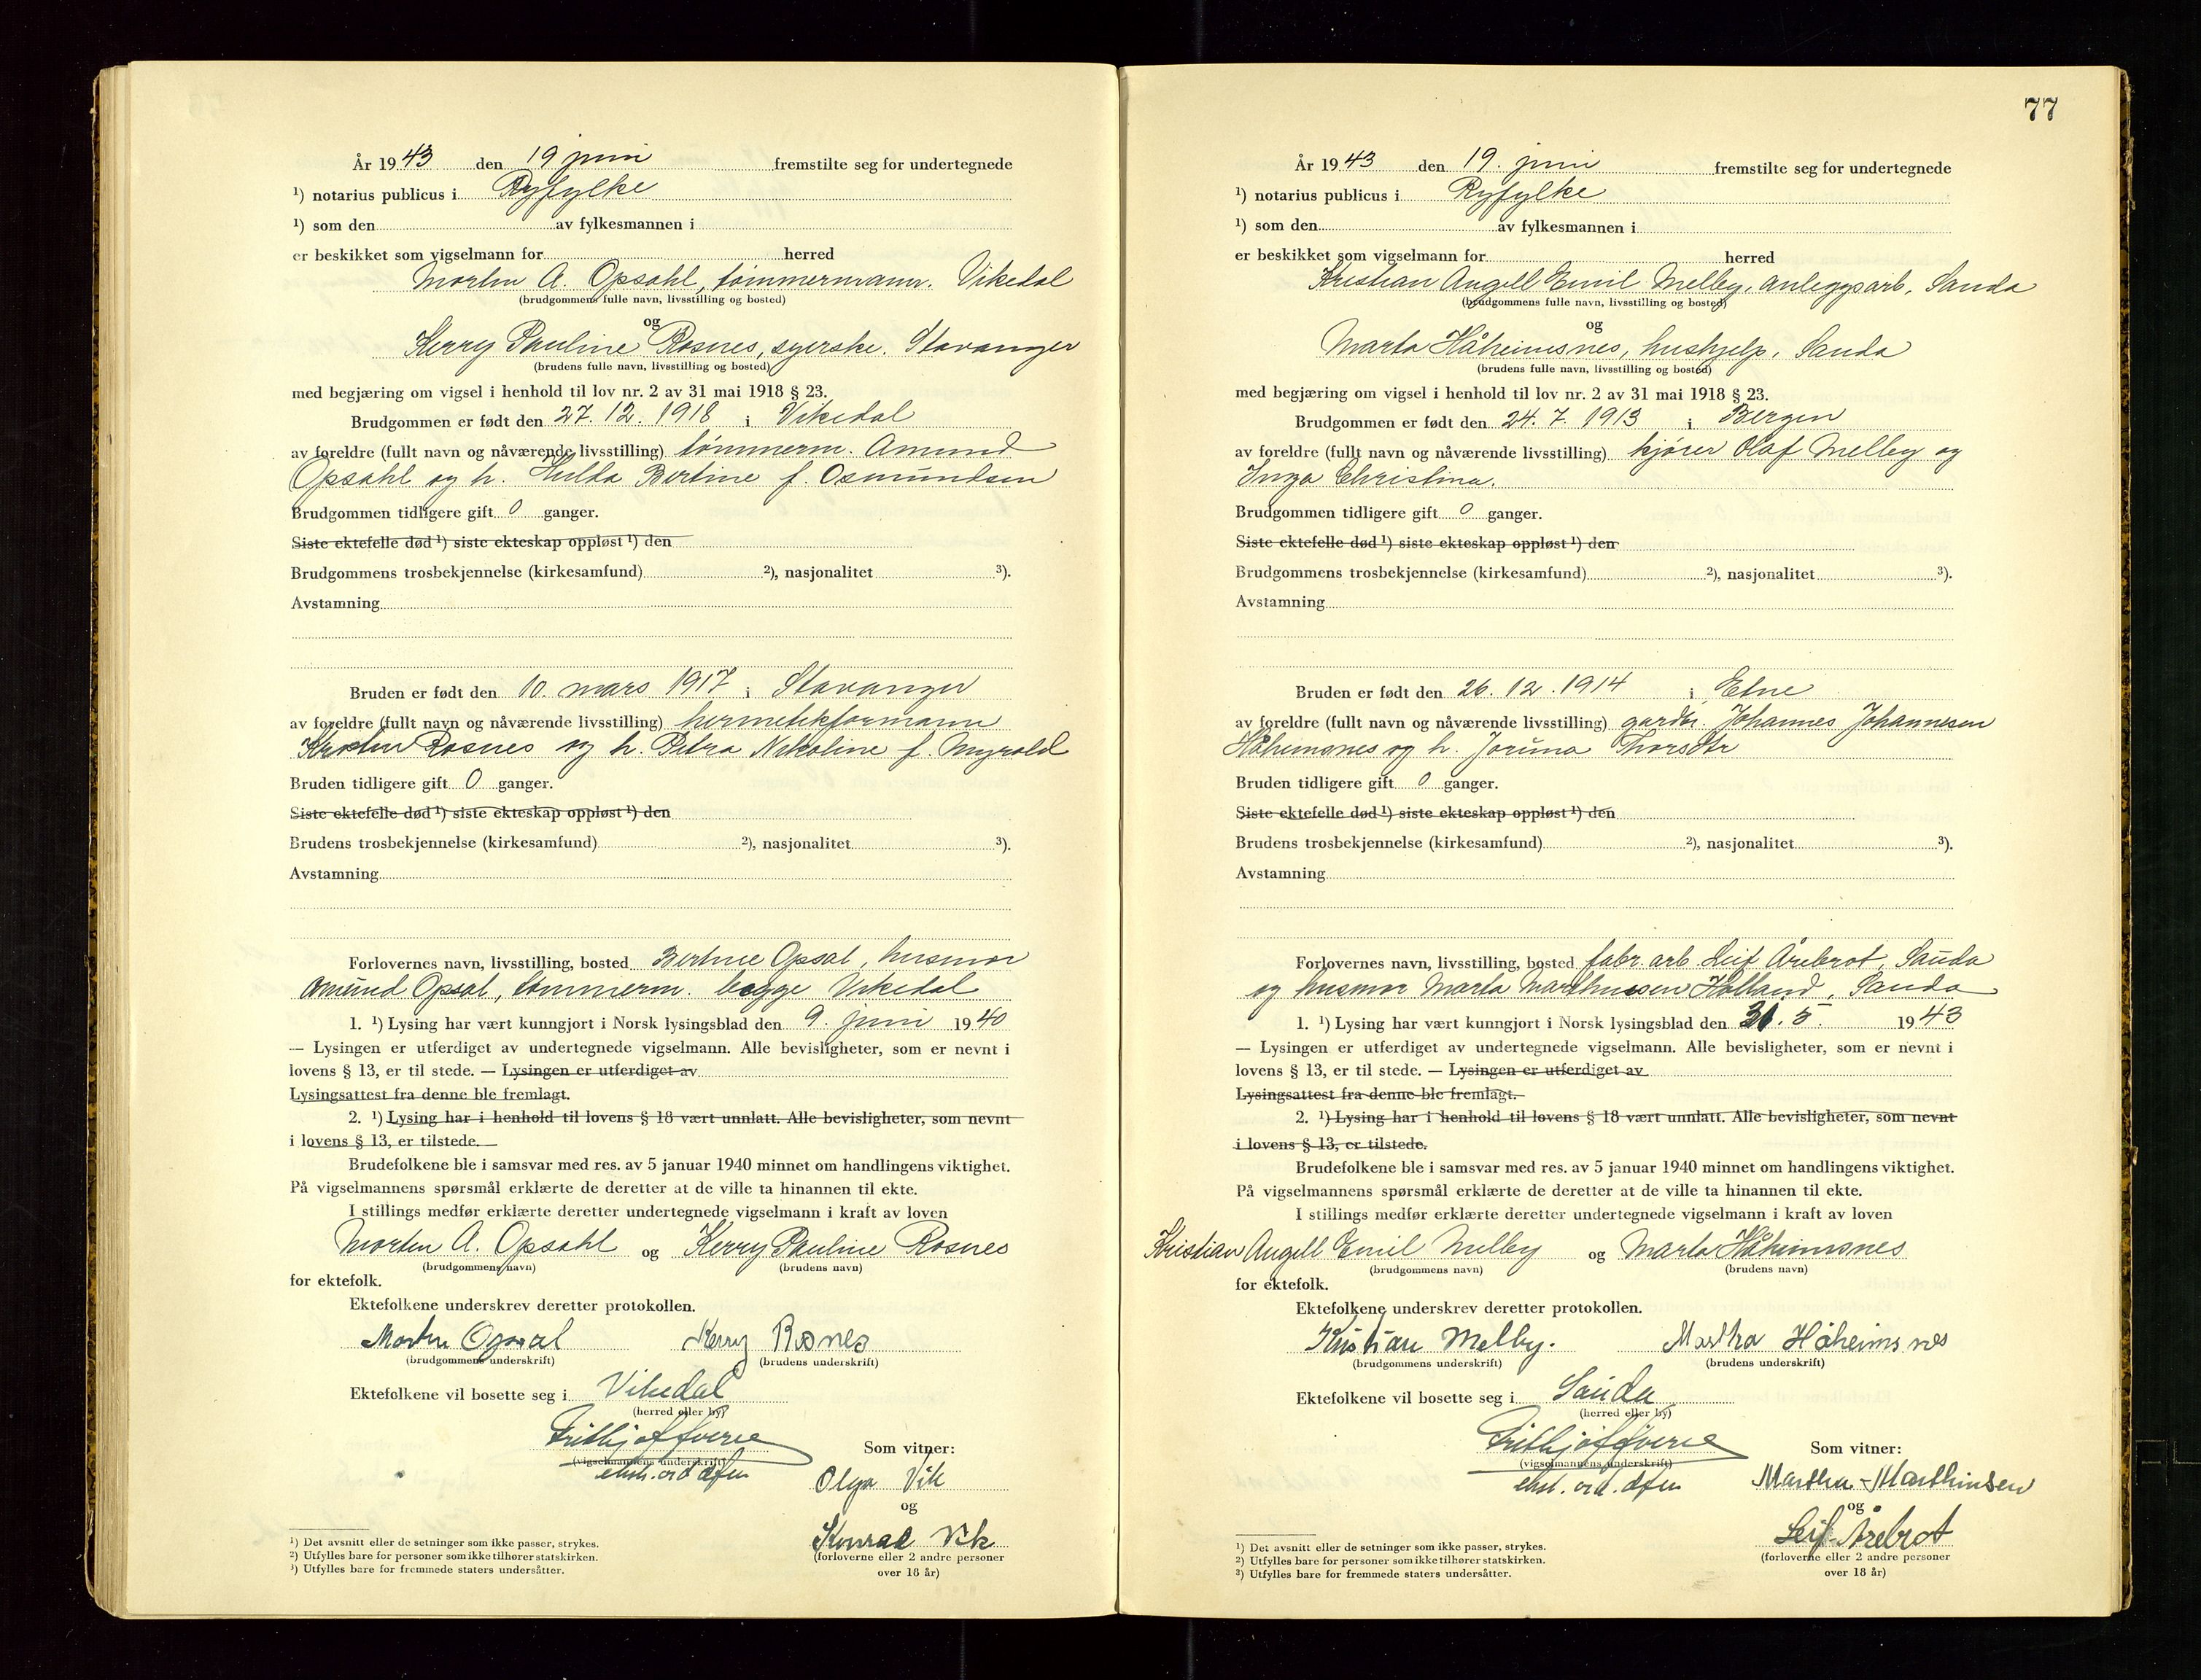 År 1943 den 19 juni fremstilte seg for undertegnede
¹) notarius publicus i Ryfylke
¹) som den av fylkesmannen i
er beskikket som vigselmann for herred
Morten A. Opsahl, tømmermann. Vikedal
(brudgommens fulle navn, livsstilling og bosted)
og
Kerry Pauline Rosnes, syerske. Stavanger
(brudens fulle navn, livsstilling og bosted)
med begjæring om vigsel i henhold til lov nr. 2 av 31 mai 1918 § 23.
Brudgommen er født den 27. 12. 1918 i Vikedal
av foreldre (fullt navn og nåværende livsstilling) tømmerm. Amund
Opsahl og h. Hulda Bertine f. Osmundsen
Brudgommen tidligere gift 0 ganger.
Siste ektefelle død ¹) siste ekteskap oppløst ¹) den
Brudgommens trosbekjennelse (kirkesamfund) ²), nasjonalitet ³).
Avstamning
Bruden er født den 10. mars 1917 i Stavanger
av foreldre (fullt navn og nåværende livsstilling) hermetikformann
Rosnes og h. Petra Nikoline f. Myrold
Bruden tidligere gift 0 ganger.
Siste ektefelle død ¹) siste ekteskap oppløst ¹) den
Brudens trosbekjennelse (kirkesamfund) ²), nasjonalitet ³).
Avstamning
Forlovernes navn, livsstilling, bosted Bertine Opsal, husmor
Amund Opsal, tømmerm. begge Vikedal
1. ¹) Lysing har vært kunngjort i Norsk lysingsblad den 9. juni 1940
— Lysingen er utferdiget av undertegnede vigselmann. Alle bevisligheter, som er nevnt i
lovens § 13, er til stede. — Lysingen er utferdiget av
Lysingsattest fra denne ble fremlagt.
2. ¹) Lysing har i henhold til lovens § 18 vært unnlatt. Alle bevisligheter, som nevnt
i lovens § 13, er tilstede.
Brudefolkene ble i samsvar med res. av 5 januar 1940 minnet om handlingens viktighet.
På vigselmannens spørsmål erklærte de deretter at de ville ta hinannen til ekte.
I stillings medfør erklærte deretter undertegnede vigselmann i kraft av loven
Morten A. Opsahl og Kerry Pauline Rosnes
(brudgommens navn) (brudens navn)
for ektefolk.
Ektefolkene underskrev deretter protokollen.
Morten Opsal Kerry Rosnes
(brudgommens underskrift) (brudens underskrift)
Ektefolkene vil bosette seg i Vikedal
(herred eller by)
(vigselmannens underskrift)
Som vitner:
Olga Vik
og
Konrad Vik
(forloverne eller 2 andre personer
over 18 år)
¹) Det avsnitt eller de setninger som ikke passer, strykes.
²) Utfylles bare for personer som ikke tilhører statskirken.
³) Utfylles bare for fremmede staters undersåtter.
77
År 1943 den 19. juni fremstilte seg for undertegnede
¹) notarius publicus i Ryfylke
¹) som den av fylkesmannen i
er beskikket som vigselmann for herred
Kristian Angell Emil Melby, anleggsarb, Sauda
(brudgommens fulle navn, livsstilling og bosted)
og
Marta Håheimsnes, hushjelp, Sauda
(brudens fulle navn, livsstilling og bosted)
med begjæring om vigsel i henhold til lov nr. 2 av 31 mai 1918 § 23.
Brudgommen er født den 24. 7. 1913 i Bergen
av foreldre (fullt navn og nåværende livsstilling) kjører Olaf Melby og
Inga Christina.
Brudgommen tidligere gift 0 ganger.
Siste ektefelle død ¹) siste ekteskap oppløst ¹) den
Brudgommens trosbekjennelse (kirkesamfund) ²), nasjonalitet ³).
Avstamning
Bruden er født den 26. 12. 1914 i Etne
av foreldre (fullt navn og nåværende livsstilling) gardbr. Johannes Johannesen
Håheimsnes og h. Joruna Thorsdtr
Bruden tidligere gift 0 ganger.
Siste ektefelle død ¹) siste ekteskap oppløst ¹) den
Brudens trosbekjennelse (kirkesamfund) ²), nasjonalitet ³).
Avstamning
Forlovernes navn, livsstilling, bosted fabr. arb. Leif Årebrot, Sauda
og husmor Marta Marthinsen Hølland, Sauda
1. ¹) Lysing har vært kunngjort i Norsk lysingsblad den 31. 5. 1943
— Lysingen er utferdiget av undertegnede vigselmann. Alle bevisligheter, som er nevnt i
lovens § 13, er til stede. — Lysingen er utferdiget av
Lysingsattest fra denne ble fremlagt.
2. ¹) Lysing har i henhold til lovens § 18 vært unnlatt. Alle bevisligheter, som nevnt
i lovens § 13, er tilstede.
Brudefolkene ble i samsvar med res. av 5 januar 1940 minnet om handlingens viktighet.
På vigselmannens spørsmål erklærte de deretter at de ville ta hinannen til ekte.
I stillings medfør erklærte deretter undertegnede vigselmann i kraft av loven
Kristian Angell Emil Melby og Marta Håheimsnes
(brudgommens navn) (brudens navn)
for ektefolk.
Ektefolkene underskrev deretter protokollen.
Kristian Melby. Martha Håheimsnes
(brudgommens underskrift) (brudens underskrift)
Ektefolkene vil bosette seg i Sauda
(herred eller by)
(vigselmannens underskrift)
Som vitner:
Martha Marthinsen
og
Leif Årebrot
(forloverne eller 2 andre personer
over 18 år)
¹) Det avsnitt eller de setninger som ikke passer, strykes.
²) Utfylles bare for personer som ikke tilhører statskirken.
³) Utfylles bare for fremmede staters undersåtter.